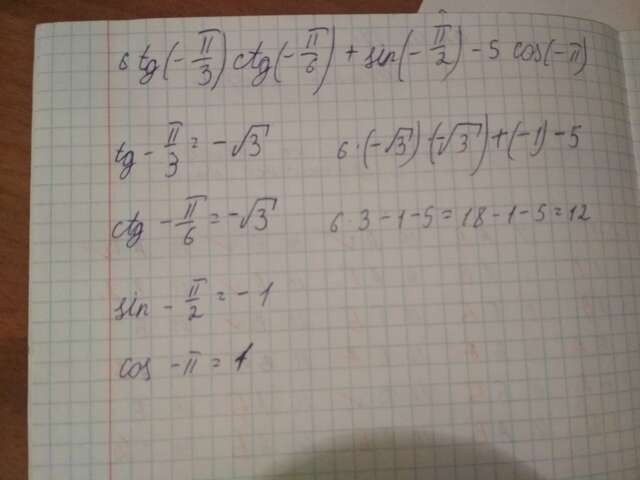 6 tg(-π/3) ctg(-π/6) + sin(-π/2) - 5 cos(-π)
tg - π/3 = -√3
6·(-√3)·(-√3)+(-1)-5
ctg - π/6 = -√3
6·3-1-5=18-1-5=12
sin - π/2 = -1
cos - π = 1